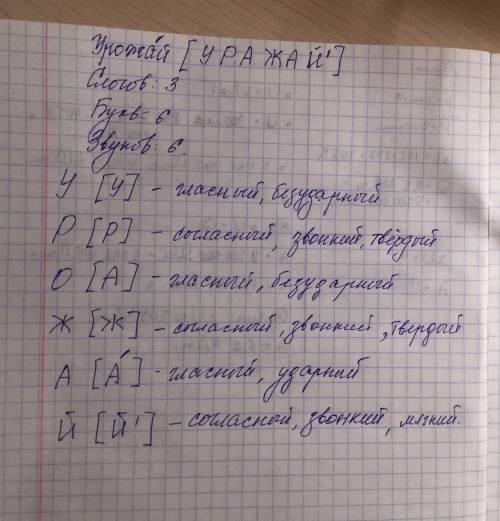 Урожа́й [УРАЖАЙ']
Слогов: 3
Букв: 6
Звуков: 6.
У [У] - гласный, безударный
Р [Р] - согласный, звонкий, твёрдый
О [А] - гласный, безударный
Ж [Ж] - согласный, звонкий, твердый
А [А́] - гласный, ударный
Й [Й'] - согласный, звонкий, мягкий.